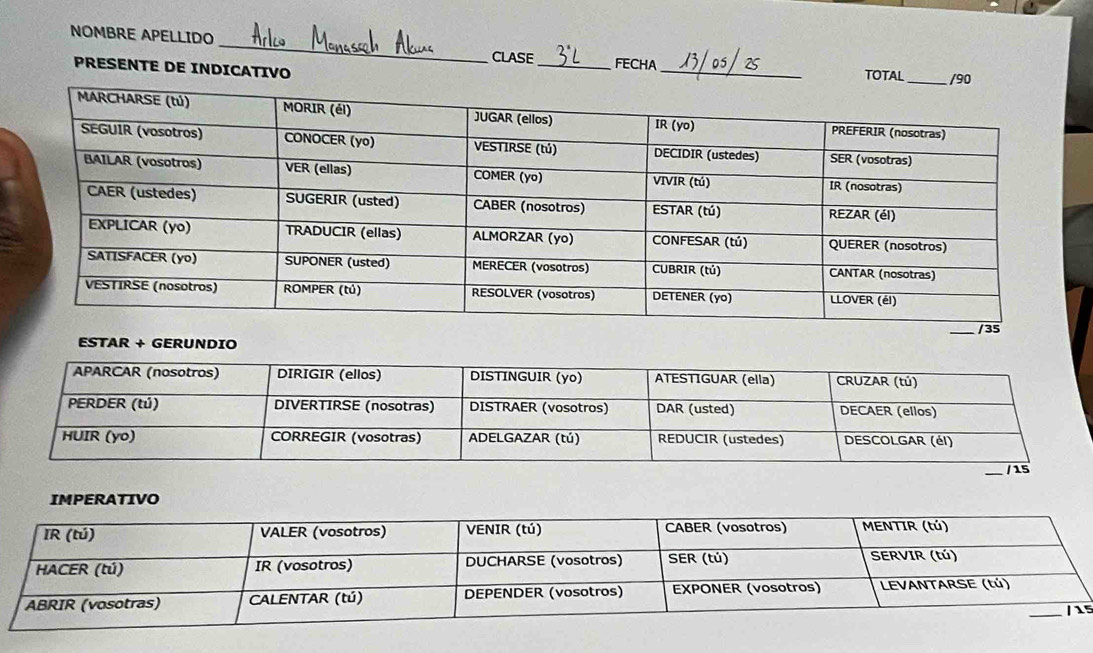 NOMBRE APELLIDO Arlco Manasseh Akuna CLASE 3°L FECHA 13/05/25 TOTAL ____ /90
PRESENTE DE INDICATIVO
MARCHARSE (tú) MORIR (él) JUGAR (ellos) IR (yo) PREFERIR (nosotras)
SEGUIR (vosotros) CONOCER (yo) VESTIRSE (tú) DECIDIR (ustedes) SER (vosotras)
BAILAR (vosotros) VER (ellas) COMER (yo) VIVIR (tú) IR (nosotras)
CAER (ustedes) SUGERIR (usted) CABER (nosotros) ESTAR (tú) REZAR (él)
EXPLICAR (yo) TRADUCIR (ellas) ALMORZAR (yo) CONFESAR (tú) QUERER (nosotros)
SATISFACER (yo) SUPONER (usted) MERECER (vosotros) CUBRIR (tú) CANTAR (nosotras)
VESTIRSE (nosotros) ROMPER (tú) RESOLVER (vosotros) DETENER (yo) LLOVER (él)
___ /35
ESTAR + GERUNDIO
APARCAR (nosotros) DIRIGIR (ellos) DISTINGUIR (yo) ATESTIGUAR (ella) CRUZAR (tú)
PERDER (tú) DIVERTIRSE (nosotras) DISTRAER (vosotros) DAR (usted) DECAER (ellos)
HUIR (yo) CORREGIR (vosotras) ADELGAZAR (tú) REDUCIR (ustedes) DESCOLGAR (él)
__ /15
IMPERATIVO
IR (tú) VALER (vosotros) VENIR (tú) CABER (vosotros) MENTIR (tú)
HACER (tú) IR (vosotros) DUCHARSE (vosotros) SER (tú) SERVIR (tú)
ABRIR (vosotras) CALENTAR (tú) DEPENDER (vosotros) EXPONER (vosotros) LEVANTARSE (tú)
___ /15